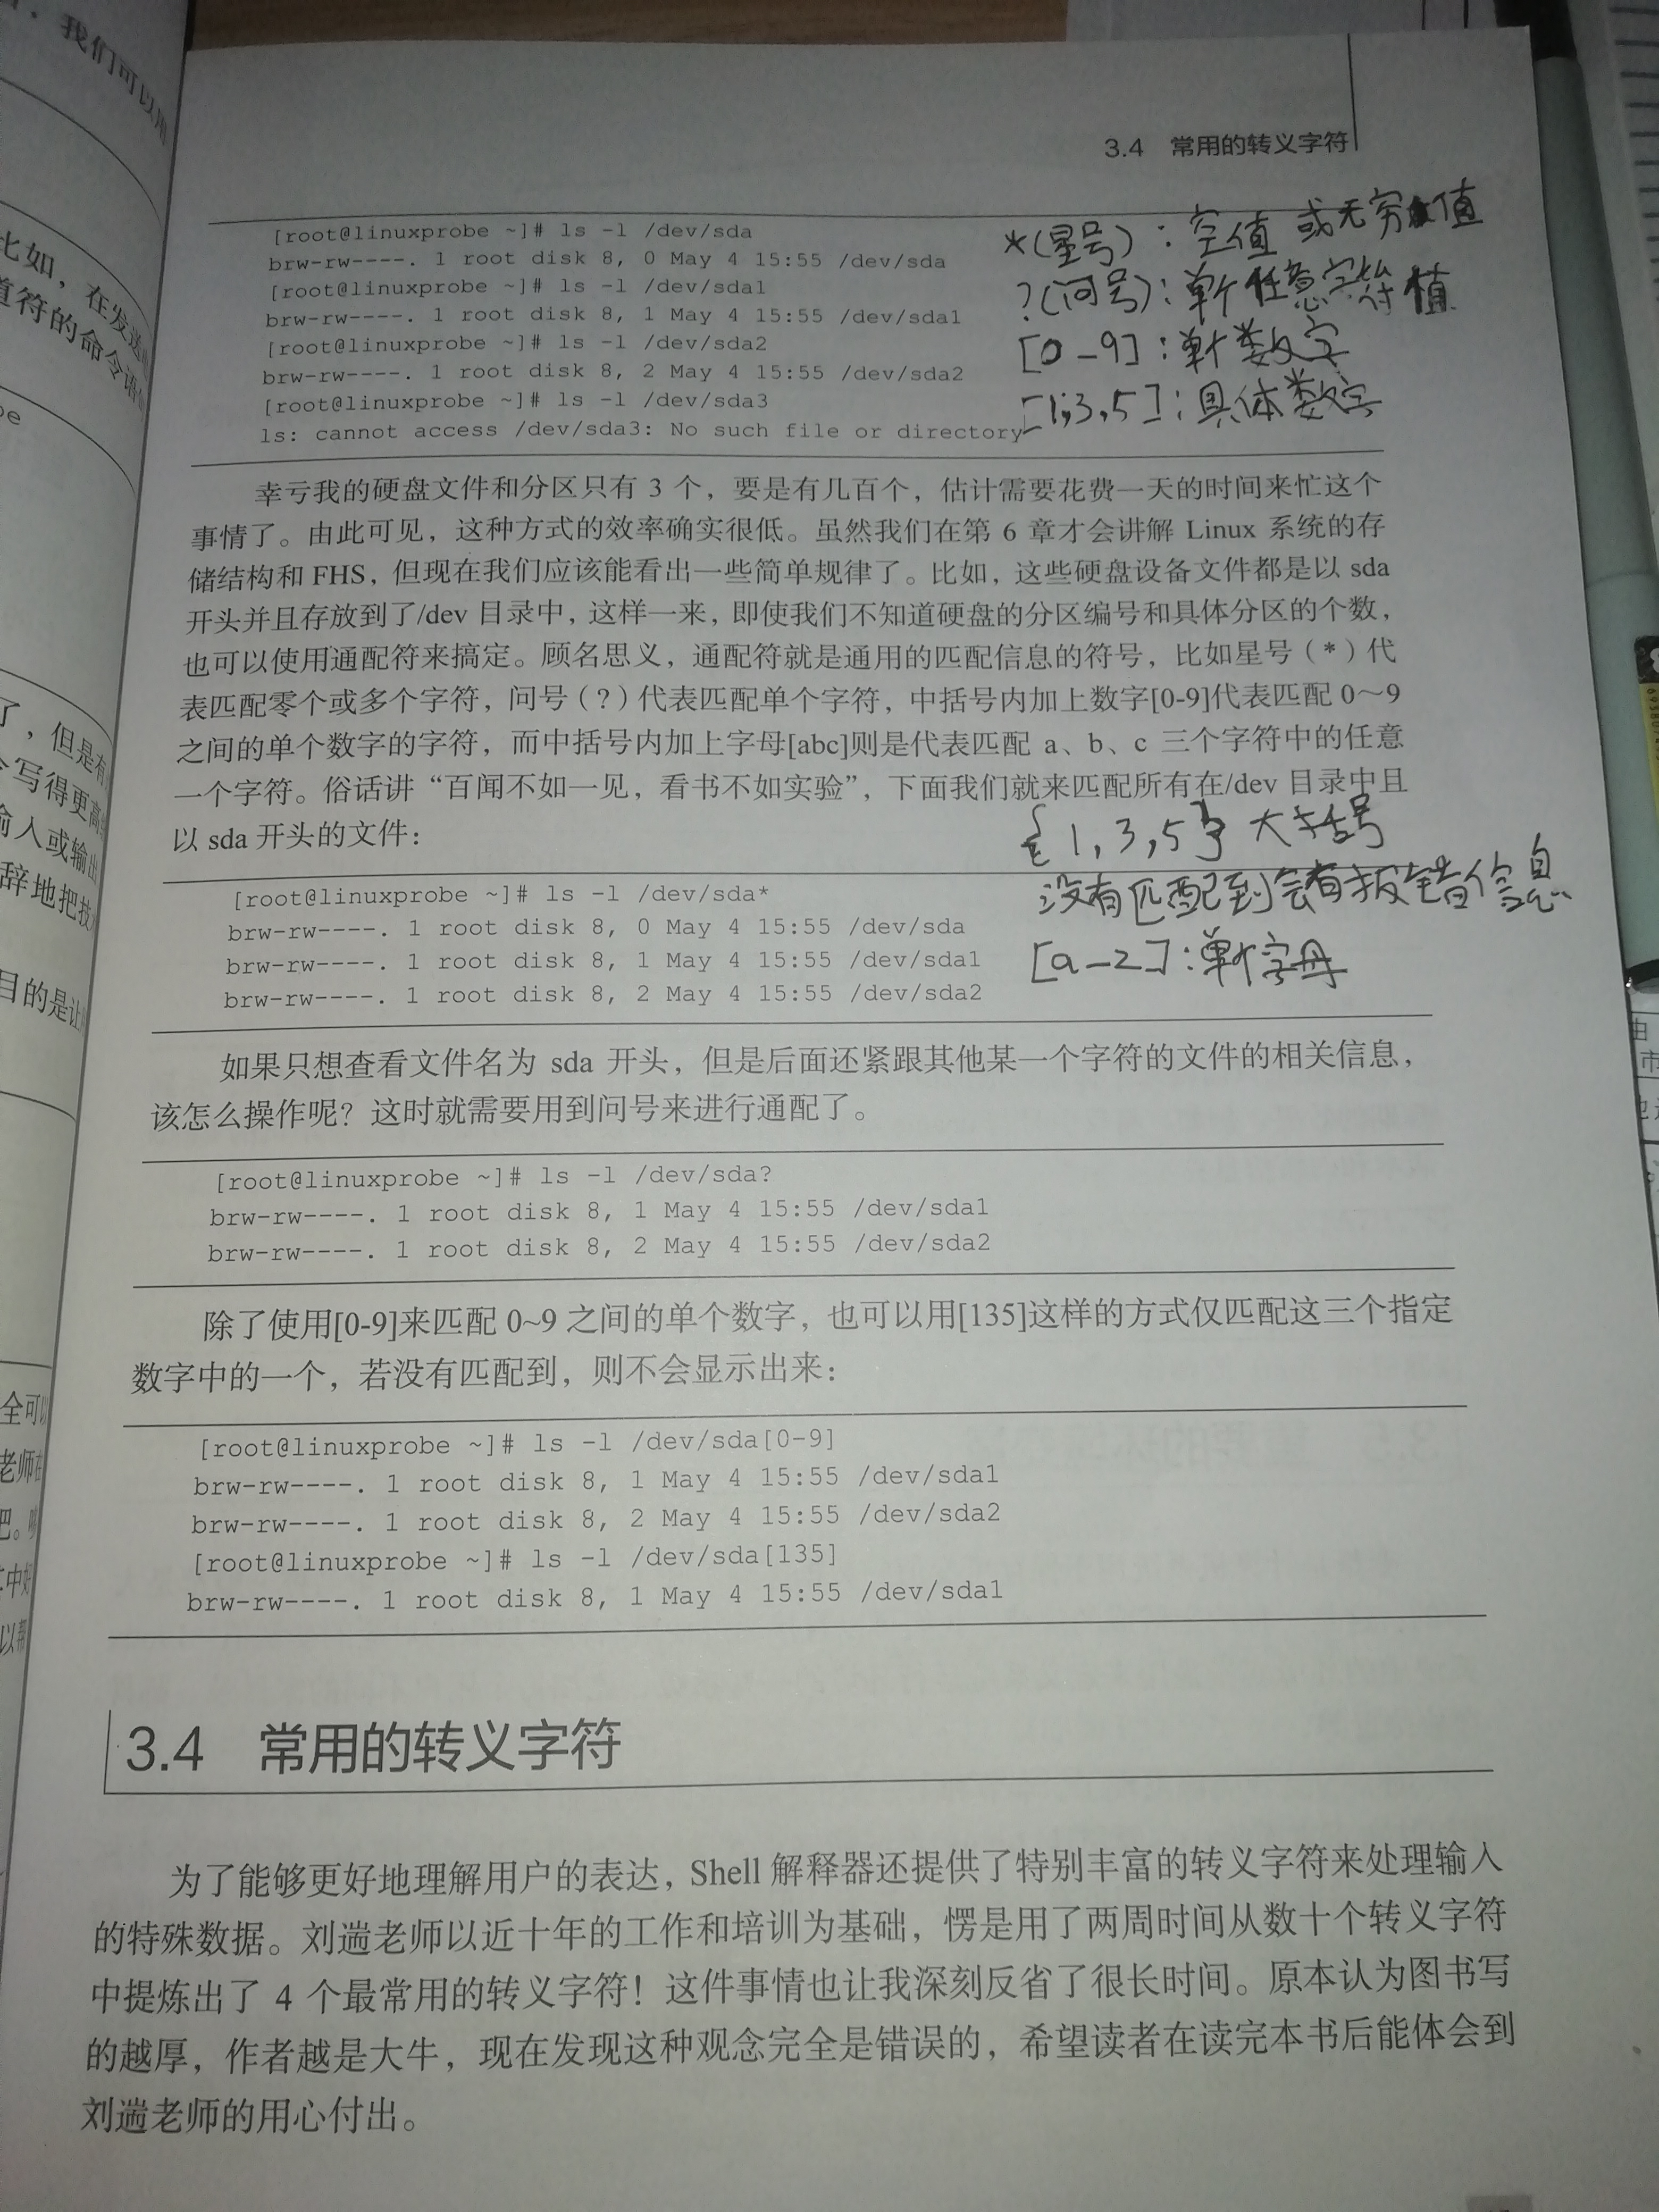 3.4 常用的转义字符
[root@linuxprobe ~]# ls -l /dev/sda
brw-rw----. 1 root disk 8, 0 May 4 15:55 /dev/sda
[root@linuxprobe ~]# ls -l /dev/sda1
brw-rw----. 1 root disk 8, 1 May 4 15:55 /dev/sda1
[root@linuxprobe ~]# ls -l /dev/sda2
brw-rw----. 1 root disk 8, 2 May 4 15:55 /dev/sda2
[root@linuxprobe ~]# ls -l /dev/sda3
ls: cannot access /dev/sda3: No such file or directory
*(星号):空值 或无穷值
?(问号):单个任意字符值
[0-9]:单个数字
[1,3,5]:具体数字
幸亏我的硬盘文件和分区只有 3 个，要是有几百个，估计需要花费一天的时间来忙这个
事情了。由此可见，这种方式的效率确实很低。虽然我们在第 6 章才会讲解 Linux 系统的存
储结构和 FHS，但现在我们应该能看出一些简单规律了。比如，这些硬盘设备文件都是以 sda
开头并且存放到了/dev 目录中，这样一来，即使我们不知道硬盘的分区编号和具体分区的个数，
也可以使用通配符来搞定。顾名思义，通配符就是通用的匹配信息的符号，比如星号（*）代
表匹配零个或多个字符，问号（?）代表匹配单个字符，中括号内加上数字[0-9]代表匹配 0～9
之间的单个数字的字符，而中括号内加上字母[abc]则是代表匹配 a、b、c 三个字符中的任意
一个字符。俗话讲“百闻不如一见，看书不如实验”，下面我们就来匹配所有在/dev 目录中且
以 sda 开头的文件：
{1,3,5} 大括号
没有匹配到会有报错信息
[a-z]:单个字母
[root@linuxprobe ~]# ls -l /dev/sda*
brw-rw----. 1 root disk 8, 0 May 4 15:55 /dev/sda
brw-rw----. 1 root disk 8, 1 May 4 15:55 /dev/sda1
brw-rw----. 1 root disk 8, 2 May 4 15:55 /dev/sda2
如果只想查看文件名为 sda 开头，但是后面还紧跟其他某一个字符的文件的相关信息，
该怎么操作呢？这时就需要用到问号来进行通配了。
[root@linuxprobe ~]# ls -l /dev/sda?
brw-rw----. 1 root disk 8, 1 May 4 15:55 /dev/sda1
brw-rw----. 1 root disk 8, 2 May 4 15:55 /dev/sda2
除了使用[0-9]来匹配 0~9 之间的单个数字，也可以用[135]这样的方式仅匹配这三个指定
数字中的一个，若没有匹配到，则不会显示出来：
[root@linuxprobe ~]# ls -l /dev/sda[0-9]
brw-rw----. 1 root disk 8, 1 May 4 15:55 /dev/sda1
brw-rw----. 1 root disk 8, 2 May 4 15:55 /dev/sda2
[root@linuxprobe ~]# ls -l /dev/sda[135]
brw-rw----. 1 root disk 8, 1 May 4 15:55 /dev/sda1
3.4 常用的转义字符
为了能够更好地理解用户的表达，Shell 解释器还提供了特别丰富的转义字符来处理输入
的特殊数据。刘遄老师以近十年的工作和培训为基础，愣是用了两周时间从数十个转义字符
中提炼出了 4 个最常用的转义字符！这件事情也让我深刻反省了很长时间。原本认为图书写
的越厚，作者越是大牛，现在发现这种观念完全是错误的，希望读者在读完本书后能体会到
刘遄老师的用心付出。